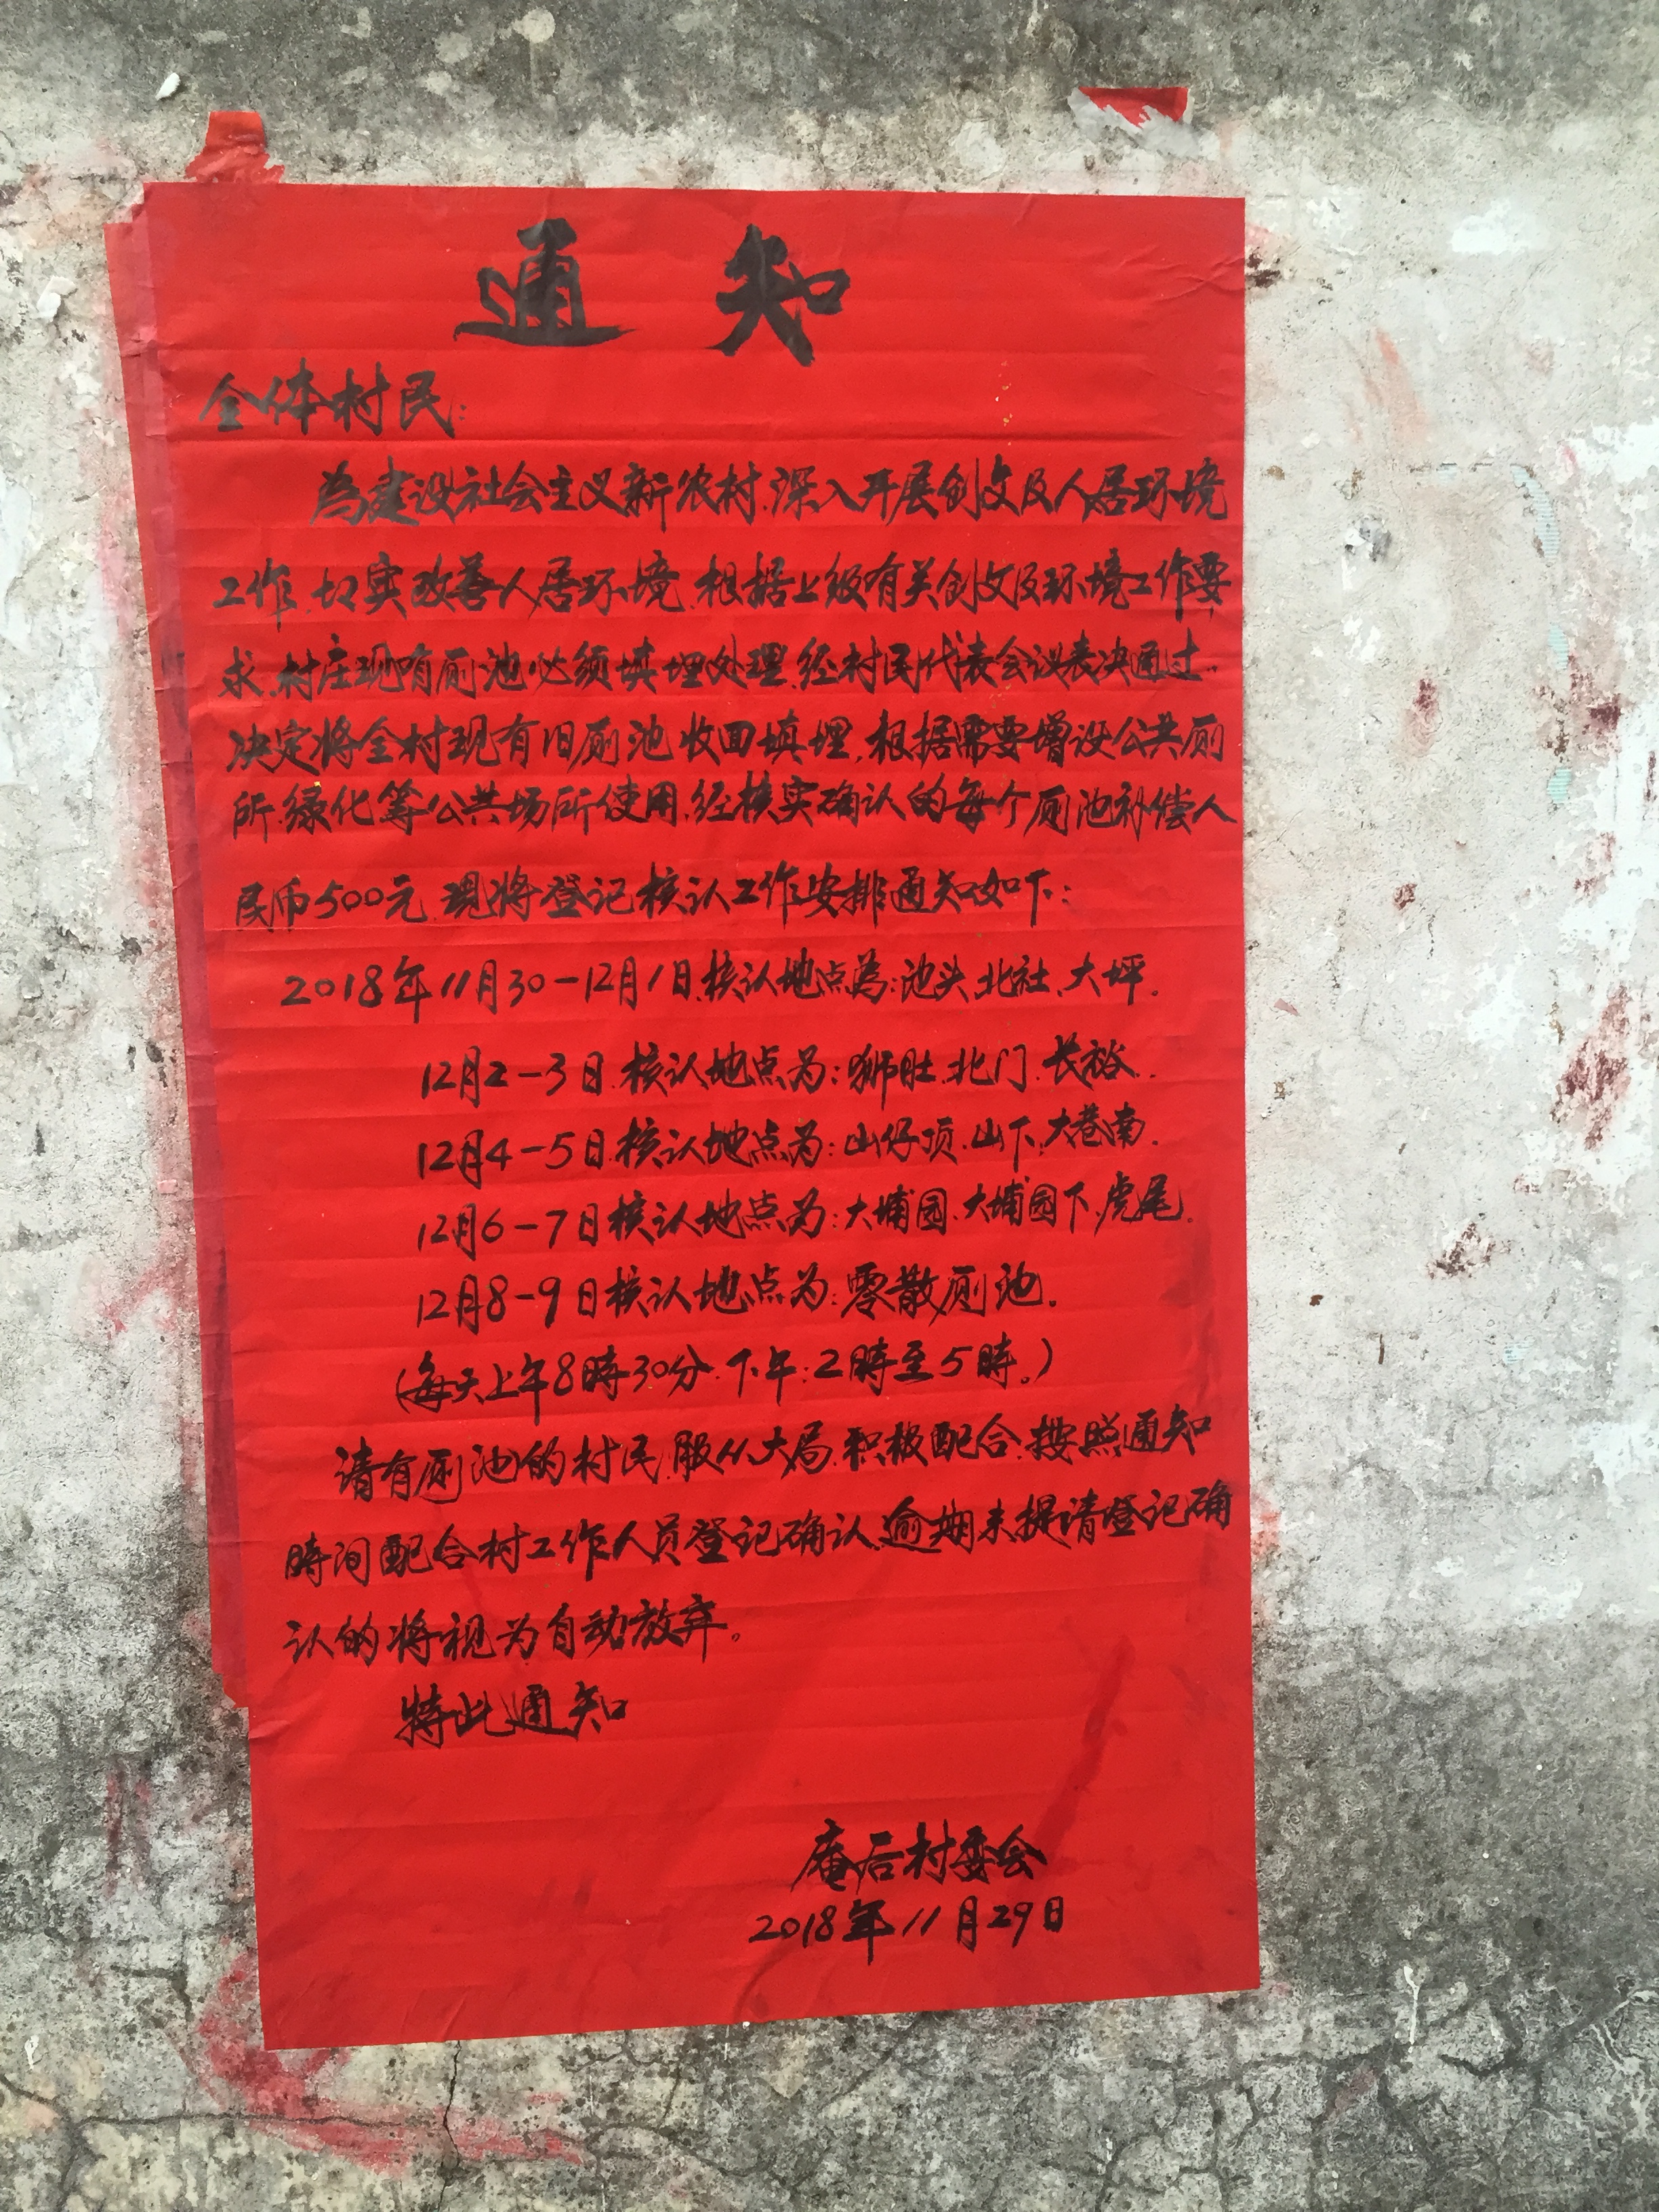 通知
全体村民:
為建设社会主义新农村.深入开展创文及人居环境
工作.切实改善人居环境.根据上级有关创文及环境工作要
求.村庄现有厕池必须填埋处理.经村民代表会议表决通过.
决定将全村现有旧厕池收回填埋.根据需要增设公共厕
所.绿化等公共场所使用.经核实确认的每个厕池补偿人
民币500元.现将登记核认工作安排通知如下:
2018年11月30-12月1日.核认地点為:池头.北社.大坪.
12月2-3日.核认地点为:狮肚.北门.长裕.
12月4-5日.核认地点为:山仔顶.山下.大巷南.
12月6-7日核认地点为:大埔园.大埔园下.虎尾.
12月8-9日核认地点为:零散厕池.
(每天上午8時30分.下午:2時至5時.)
请有厕池的村民.服从大局.积极配合.按照通知
時间配合村工作人员登记确认.逾期未提请登记确
认的将视为自动放弃。
特此通知
庵后村委会
2018年11月29日